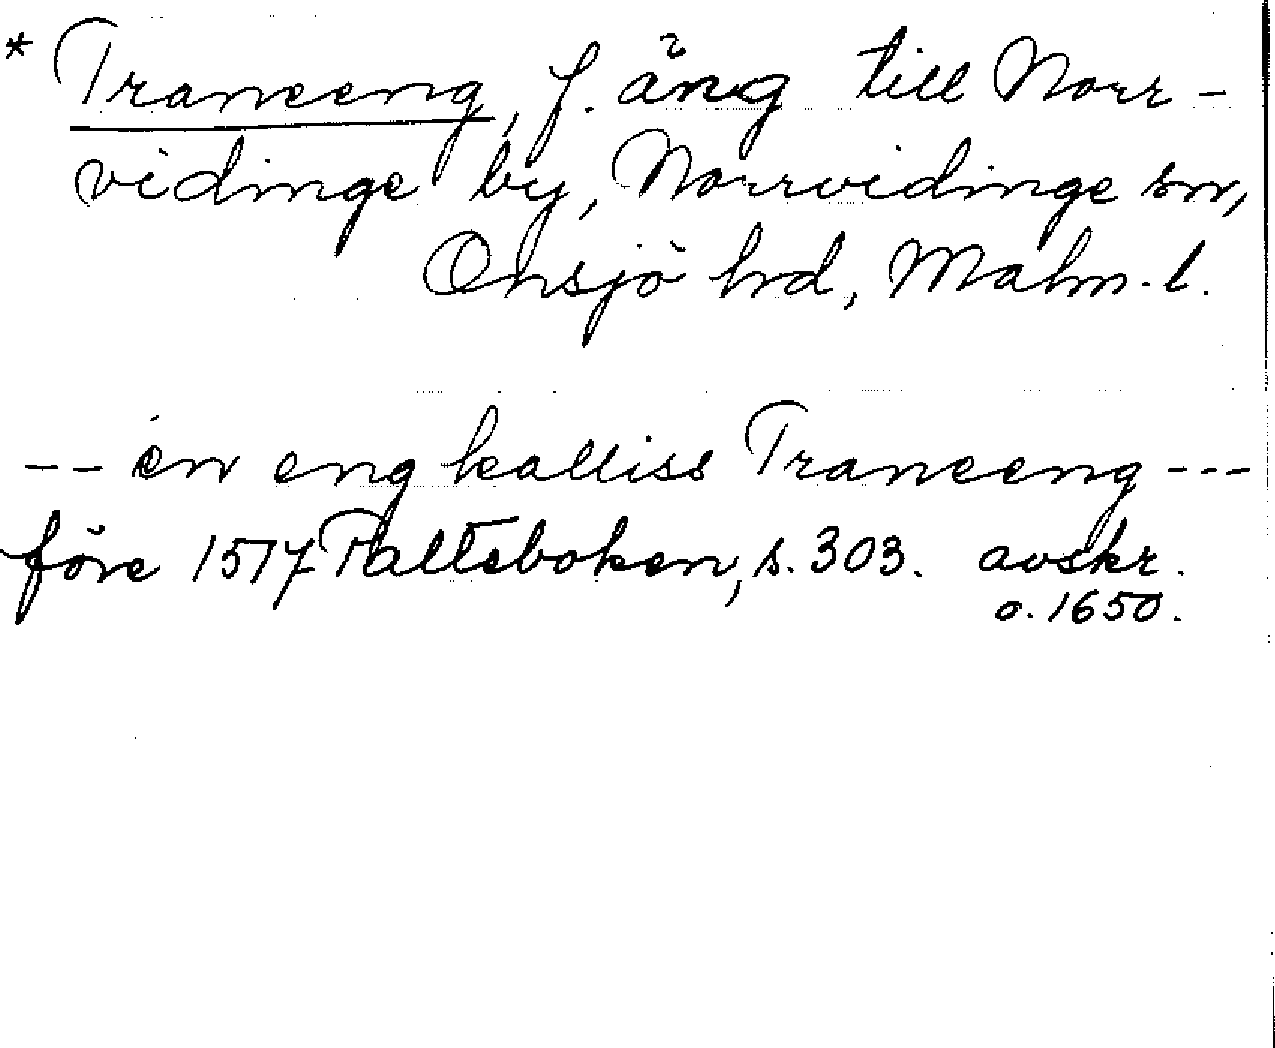 * Traneeng, f. äng till Norr-
vidinge by, Norrvidinge sn,
Onsjö hrd, Malm. l.
-- en eng kalliss Traneeng ---
före 1517 Palteboken, s. 303. avskr.
o. 1650.